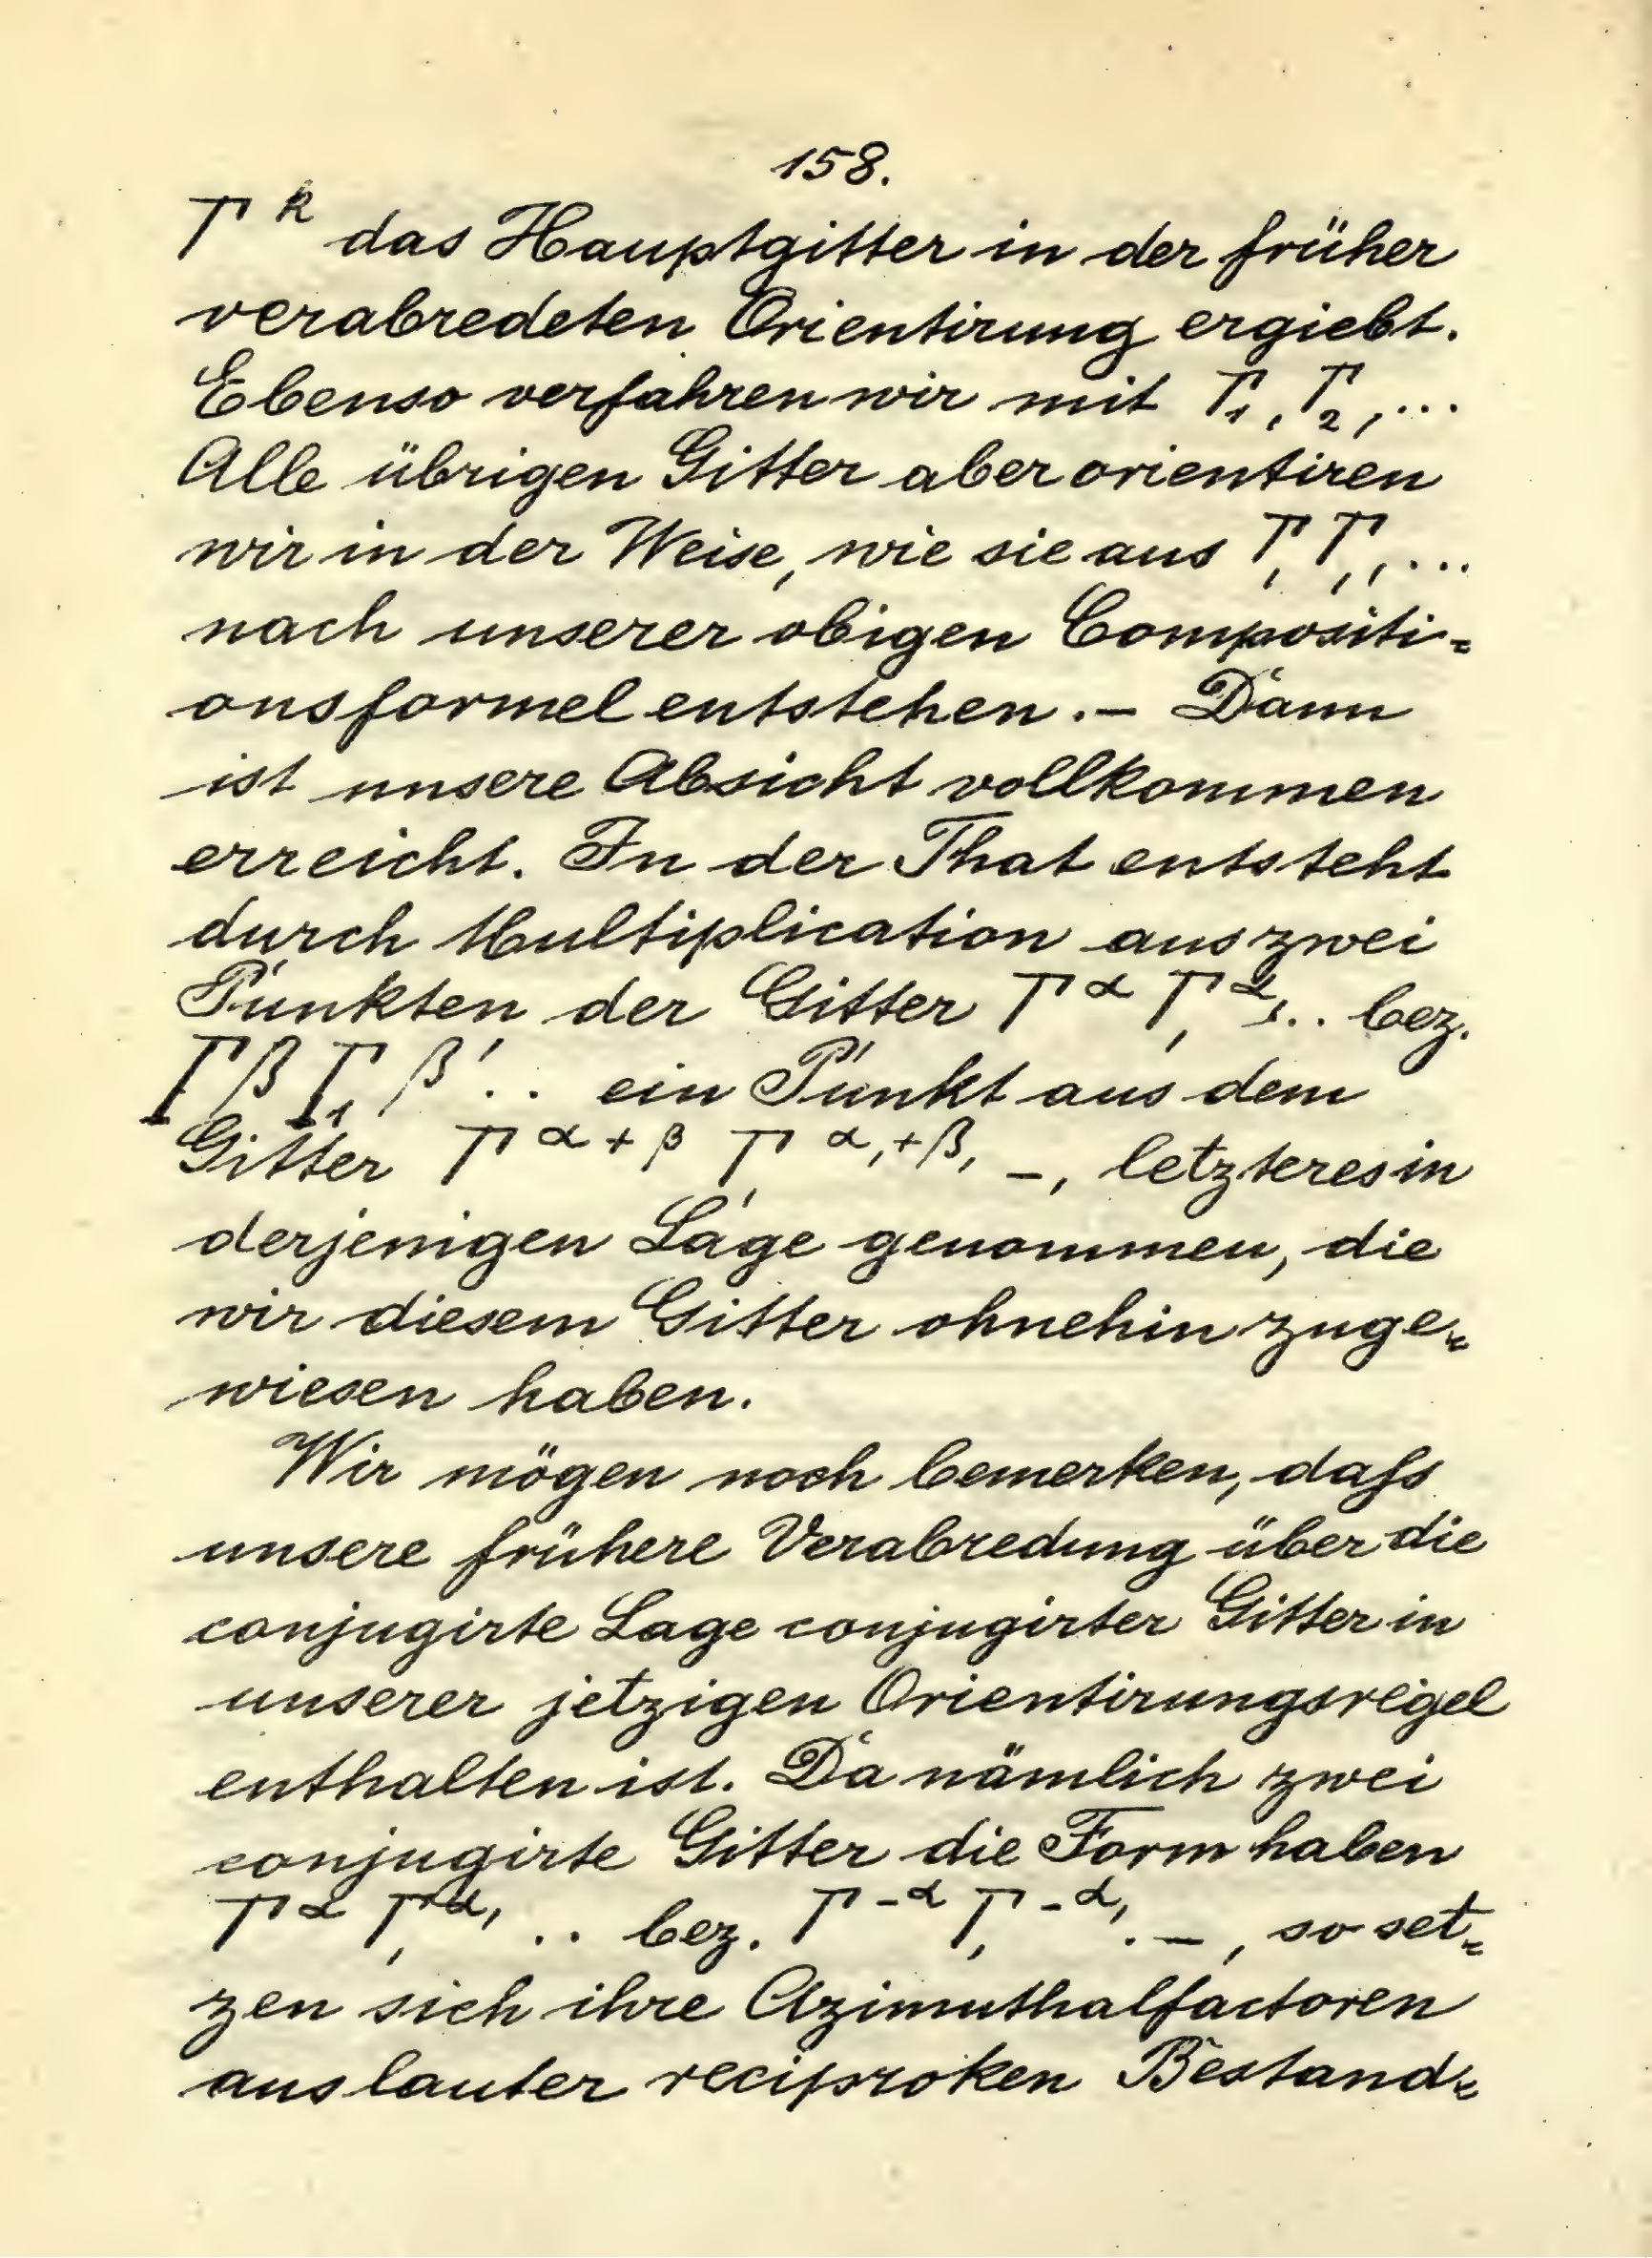 158.
Γ^k das Hauptgitter in der früher
verabredeten Orientirung ergiebt.
Ebenso verfahren wir mit Γ₁, Γ₂, ...
Alle übrigen Gitter aber orientiren
wir in der Weise, wie sie aus Γ, Γ,, ...
nach unserer obigen Compositi=
onsformel entstehen. – Dann
ist unsere Absicht vollkommen
erreicht. In der That entsteht
durch Multiplication aus zwei
Punkten der Gitter Γ^α Γ,^α, .. bez.
Γ^β Γ₁^β' .. ein Punkt aus dem
Gitter Γ^α+β Γ,^α,+β, –, letzteres in
derjenigen Lage genommen, die
wir diesem Gitter ohnehin zuge=
wiesen haben.
Wir mögen noch bemerken, daſs
unsere frühere Verabredung über die
conjugirte Lage conjugirter Gitter in
unserer jetzigen Orientirungsregel
enthalten ist. Da nämlich zwei
conjugirte Gitter die Form haben
Γ^α Γ,^α, .. bez. Γ^-α Γ,^-α, . –, so set=
zen sich ihre Azimuthalfactoren
aus lauter reciproken Bestand=